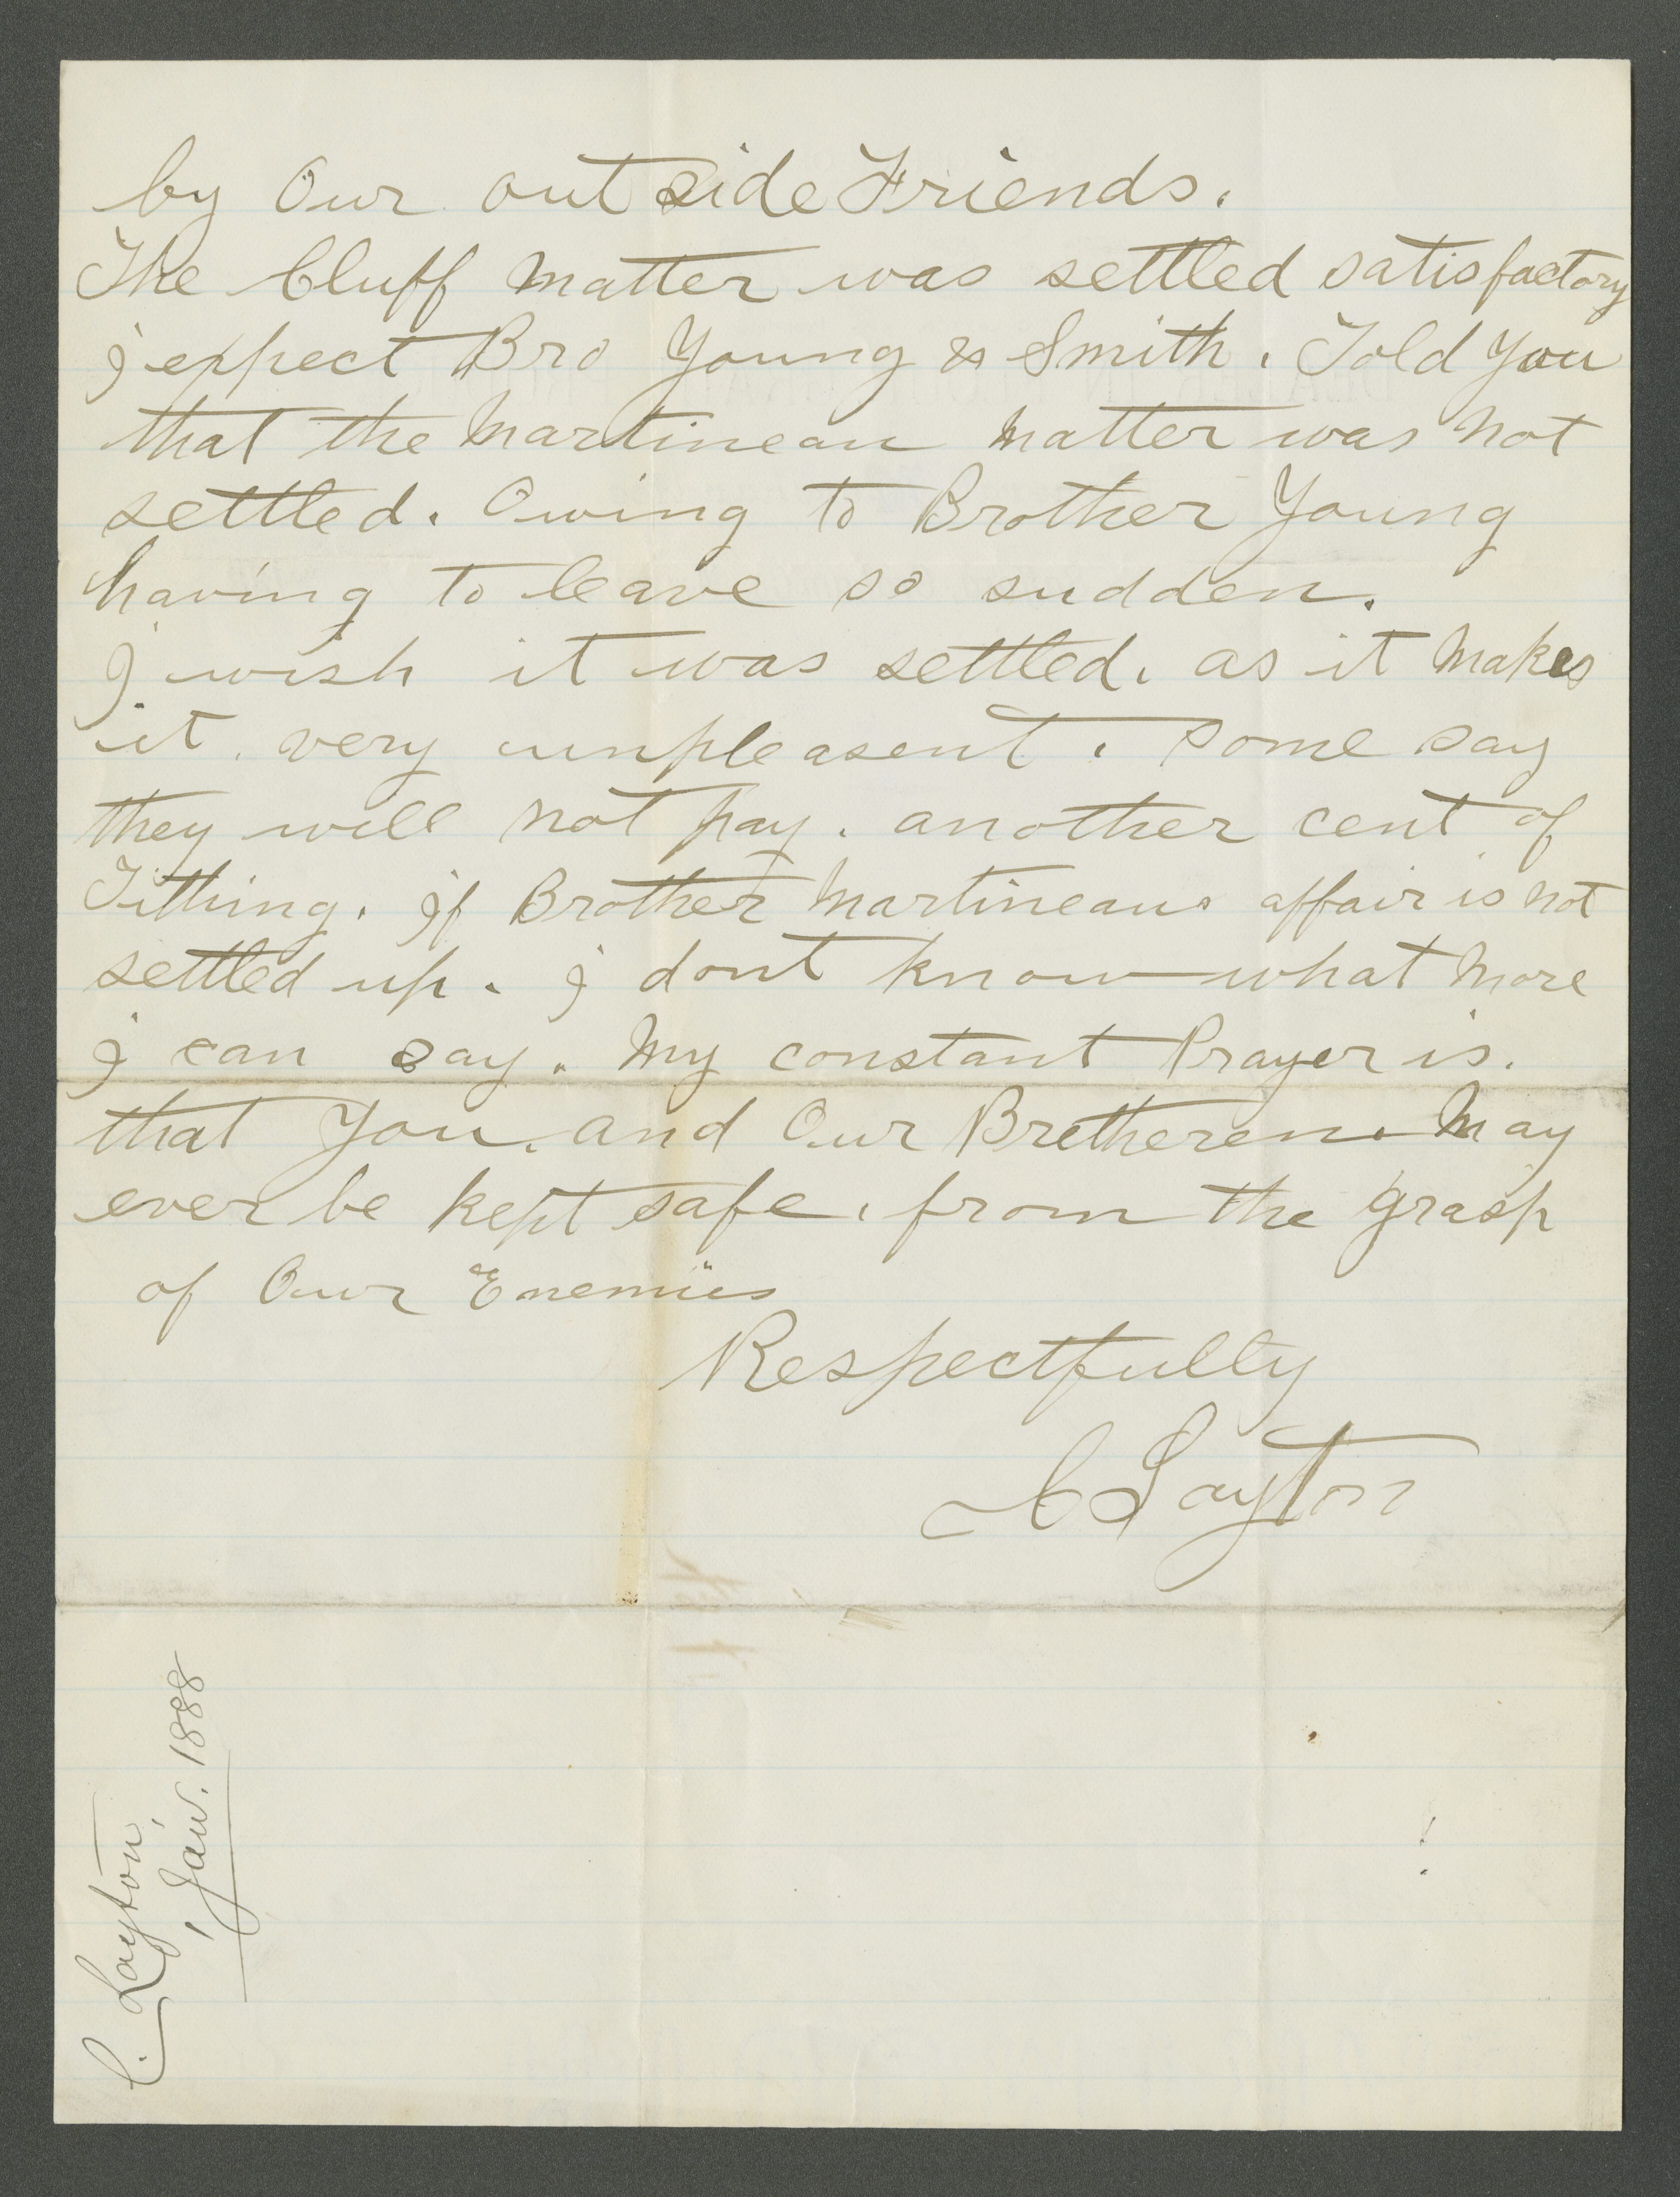 by Our out side Friends.
The Cluff Matter was settled satisfactory
I expect Bro Young & Smith. Told You
that the Martineau Matter was Not
settled. Owing to Brother Young
having to leave so sudden.
I wish it was settled. as it Makes
it very unpleasent. some say
they will Not pay. another cent of
Tithing. If Brother Martineaus affair is Not
settled up. I dont know what More
I can say. My constant Prayer is.
that You. and Our Bretheren. May
ever be kept safe. from the grasp
of Our Enemies
Respectfully
C Layton
C. Layton,
1 Jan. 1888